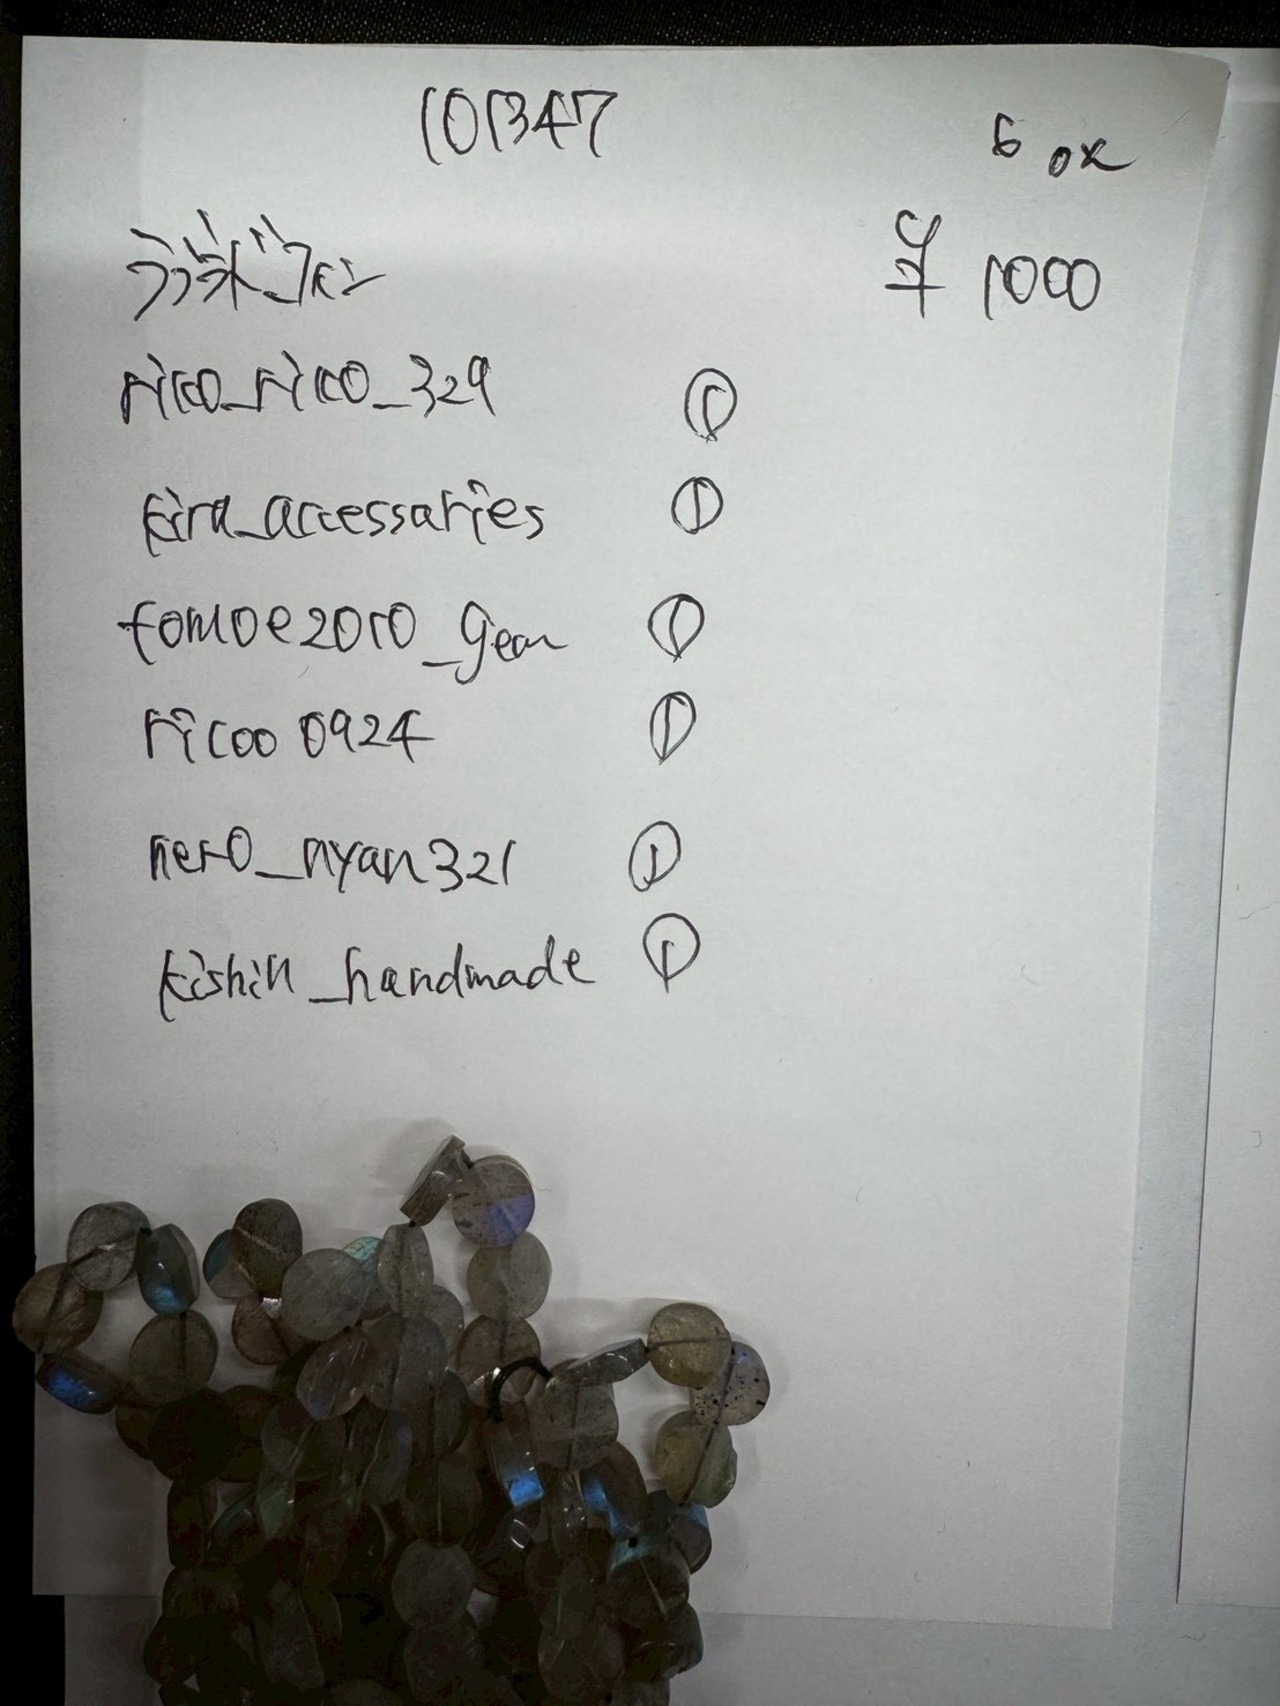 101347
6 ok
ラブラドライト コイン
¥ 1000
rico_rico_329 ①
kira_accessaries ①
tomoe2010_gem ①
ricoo0924 ①
nero_nyan321 ①
kishin_handmade ①